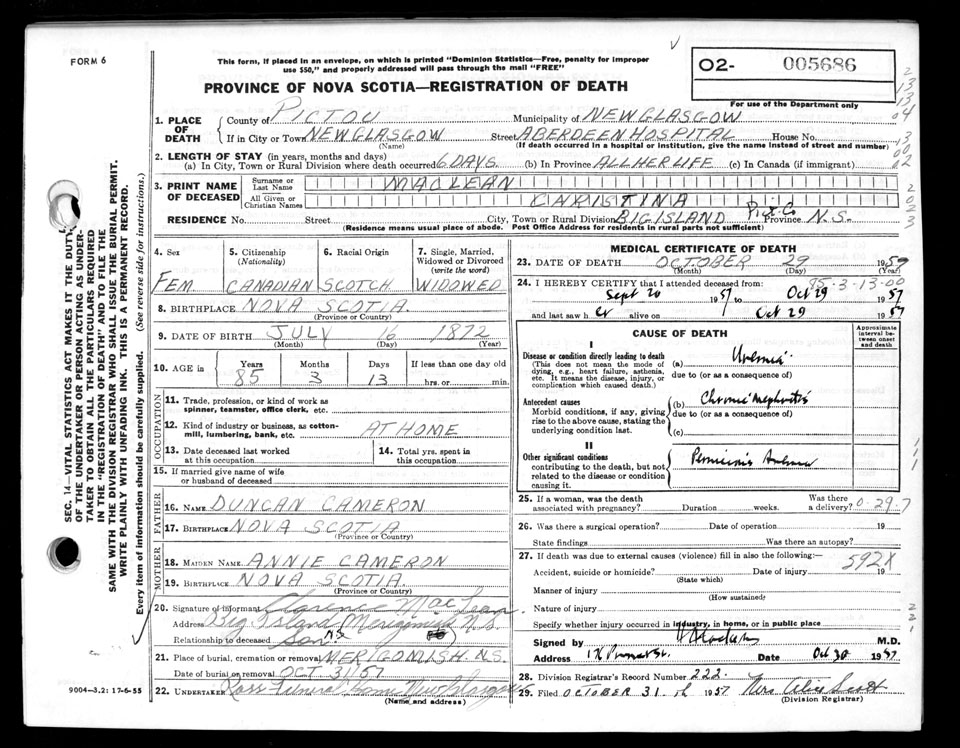 FORM 6
This form, if placed in an envelope, on which is printed "Dominion Statistics—Free, penalty for improper
use $50," and properly addressed will pass through the mail "FREE"
PROVINCE OF NOVA SCOTIA—REGISTRATION OF DEATH
O2- 005686
For use of the Department only
1. PLACE OF DEATH
County of PICTOU Municipality of NEW GLASGOW
If in City or Town NEW GLASGOW Street ABERDEEN HOSPITAL House No.
(Name) (If death occurred in a hospital or institution, give the name instead of street and number)
2. LENGTH OF STAY (in years, months and days)
(a) In City, Town or Rural Division where death occurred 6 DAYS (b) In Province ALL HER LIFE (c) In Canada (if immigrant)
3. PRINT NAME OF DECEASED
Surname or Last Name MACLEAN
All Given or Christian Names CHRISTINA
RESIDENCE No. Street City, Town or Rural Division BIG ISLAND Pict. Co Province N.S.
(Residence means usual place of abode. Post Office Address for residents in rural parts not sufficient)
4. Sex FEM
5. Citizenship (Nationality) CANADIAN
6. Racial Origin SCOTCH
7. Single, Married, Widowed or Divorced (write the word) WIDOWED
8. BIRTHPLACE NOVA SCOTIA
(Province or Country)
9. DATE OF BIRTH JULY 16 1872
(Month) (Day) (Year)
10. AGE in Years Months Days If less than one day old
85 3 13 hrs. or min.
OCCUPATION
11. Trade, profession, or kind of work as
spinner, teamster, office clerk, etc.
12. Kind of industry or business, as cotton-
mill, lumbering, bank, etc. AT HOME
13. Date deceased last worked
at this occupation
14. Total yrs. spent in
this occupation
15. If married give name of wife
or husband of deceased
FATHER
16. NAME DUNCAN CAMERON
17. BIRTHPLACE NOVA SCOTIA
(Province or Country)
MOTHER
18. MAIDEN NAME ANNIE CAMERON
19. BIRTHPLACE NOVA SCOTIA.
(Province or Country)
20. Signature of informant Clarence MacLean
Address Big Island Merigomish N.S.
Relationship to deceased Son
21. Place of burial, cremation or removal MERIGOMISH N.S.
Date of burial or removal OCT 31/57
22. UNDERTAKER Ross Funeral Home New Glasgow
(Name and address)
MEDICAL CERTIFICATE OF DEATH
23. DATE OF DEATH OCTOBER 29 1957
(Month) (Day) (Year)
24. I HEREBY CERTIFY that I attended deceased from: 85-3-13-00
Sept 20 1957 to Oct 29 1957
and last saw h er alive on Oct 29 1957
CAUSE OF DEATH
Approximate interval between onset and death
I
Disease or condition directly leading to death
(This does not mean the mode of
dying, e.g., heart failure, asthenia,
etc. It means the disease, injury, or
complication which caused death.)
(a) Uremia
due to (or as a consequence of)
Antecedent causes
Morbid conditions, if any, giving
rise to the above cause, stating the
underlying condition last.
(b) Chronic Nephritis
due to (or as a consequence of)
(c)
II
Other significant conditions
contributing to the death, but not
related to the disease or condition
causing it.
Pernicious Anemia
25. If a woman, was the death
associated with pregnancy? Duration weeks. Was there a delivery? 0-29-7
26. Was there a surgical operation? Date of operation 19
State findings Was there an autopsy?
27. If death was due to external causes (violence) fill in also the following:—
592X
Accident, suicide or homicide? Date of injury 19
(State which)
Manner of injury
(How sustained)
Nature of injury
Specify whether injury occurred in industry, in home, or in public place
Signed by M.D.
Address Date Oct 30 1957
28. Division Registrar's Record Number 222
29. Filed OCTOBER 31 st 1957 Mrs Alice Scott
(Division Registrar)
9004—3.2: 17-6-55
SEC. 14—VITAL STATISTICS ACT MAKES IT THE DUTY
OF THE UNDERTAKER OR PERSON ACTING AS UNDER-
TAKER TO OBTAIN ALL THE PARTICULARS REQUIRED
IN THE "REGISTRATION OF DEATH" AND TO FILE THE
SAME WITH THE DIVISION REGISTRAR WHO SHALL ISSUE THE BURIAL PERMIT.
WRITE PLAINLY WITH UNFADING INK. THIS IS A PERMANENT RECORD.
Every item of information should be carefully supplied. (See reverse side for instructions.)